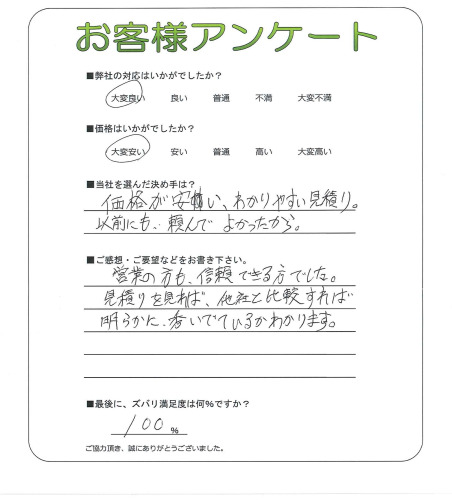 お客様アンケート
■弊社の対応はいかがでしたか？
大変良い 良い 普通 不満 大変不満
■価格はいかがでしたか？
大変安い 安い 普通 高い 大変高い
■当社を選んだ決め手は？
価格が安い、わかりやすい見積り。
以前にも、頼んで よかったから。
■ご感想・ご要望などをお書き下さい。
営業の方も、信頼できる方でした。
見積りを見れば、他社と比較すれば
明らかに、いでているかわかります。
■最後に、ズバリ満足度は何％ですか？
100％
ご協力頂き、誠にありがとうございました。